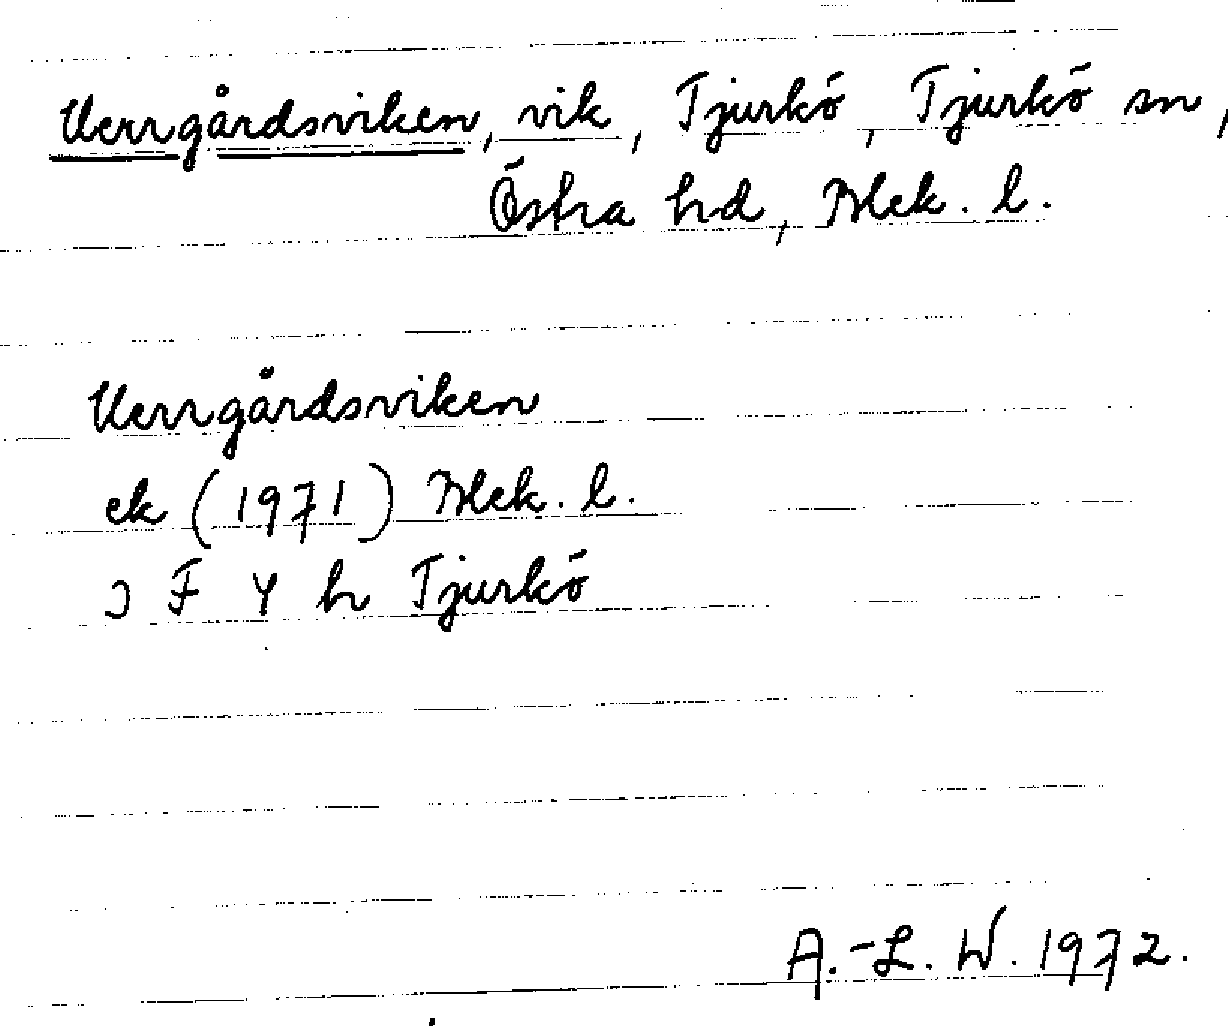 Herrgårdsviken, vik, Tjurkö, Tjurkö sn,
Östra hd, Blek. l.
Herrgårdsviken
ek (1971) Blek. l.
J F Y h Tjurkö
A.-L. W. 1972.